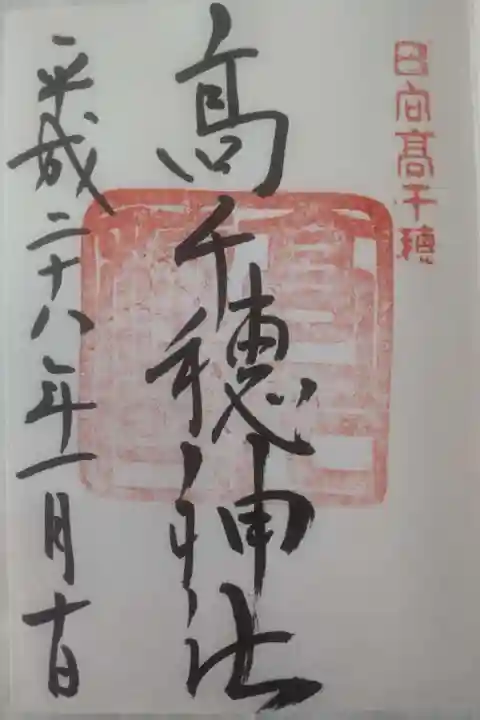 日向高千穂
高千穂神社
平成二十八年十一月十日